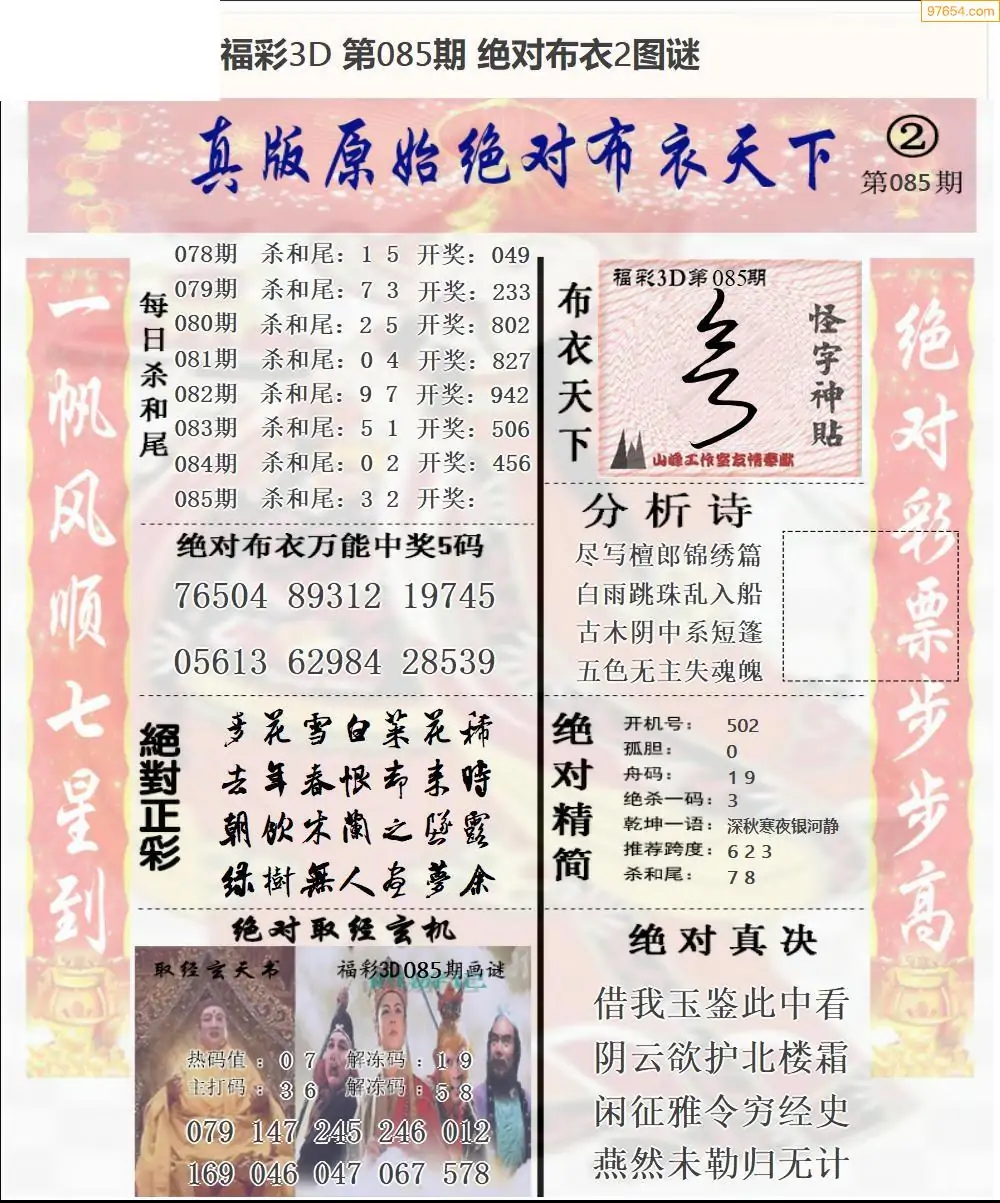 97654.com
福彩3D 第085期 绝对布衣2图谜
真版原始绝对布衣天下
②
第085期
一帆风顺七星到
每日杀和尾
078期 杀和尾：1 5 开奖：049
079期 杀和尾：7 3 开奖：233
080期 杀和尾：2 5 开奖：802
081期 杀和尾：0 4 开奖：827
082期 杀和尾：9 7 开奖：942
083期 杀和尾：5 1 开奖：506
084期 杀和尾：0 2 开奖：456
085期 杀和尾：3 2 开奖：
绝对布衣万能中奖5码
76504 89312 19745
05613 62984 28539
絕對正彩
麦花雪白菜花稀
去年春恨却来時
朝饮木蘭之墜露
绿樹無人昼夢余
绝对取经玄机
取经玄天书
福彩3D085期画谜
热码值：0 7 解冻码：1 9
主打码：3 6 解冻码：5 8
079 147 245 246 012
169 046 047 067 578
布衣天下
福彩3D第085期
怪字神貼
山峰工作室友情奉献
分析诗
尽写檀郎锦绣篇
白雨跳珠乱入船
古木阴中系短篷
五色无主失魂魄
绝对精简
开机号：502
孤胆：0
舟码：1 9
绝杀一码：3
乾坤一语：深秋寒夜银河静
推荐跨度：6 2 3
杀和尾：7 8
绝对真决
借我玉鉴此中看
阴云欲护北楼霜
闲征雅令穷经史
燕然未勒归无计
绝对彩票步步高